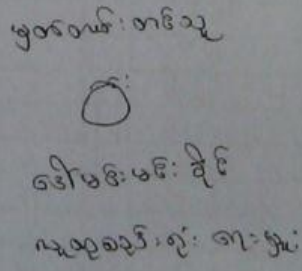 မှတ်တမ်းတင်သူ
ဒေါ်မင်းမင်းခိုင်
လူထုစည်းရုံးရေးမှူး